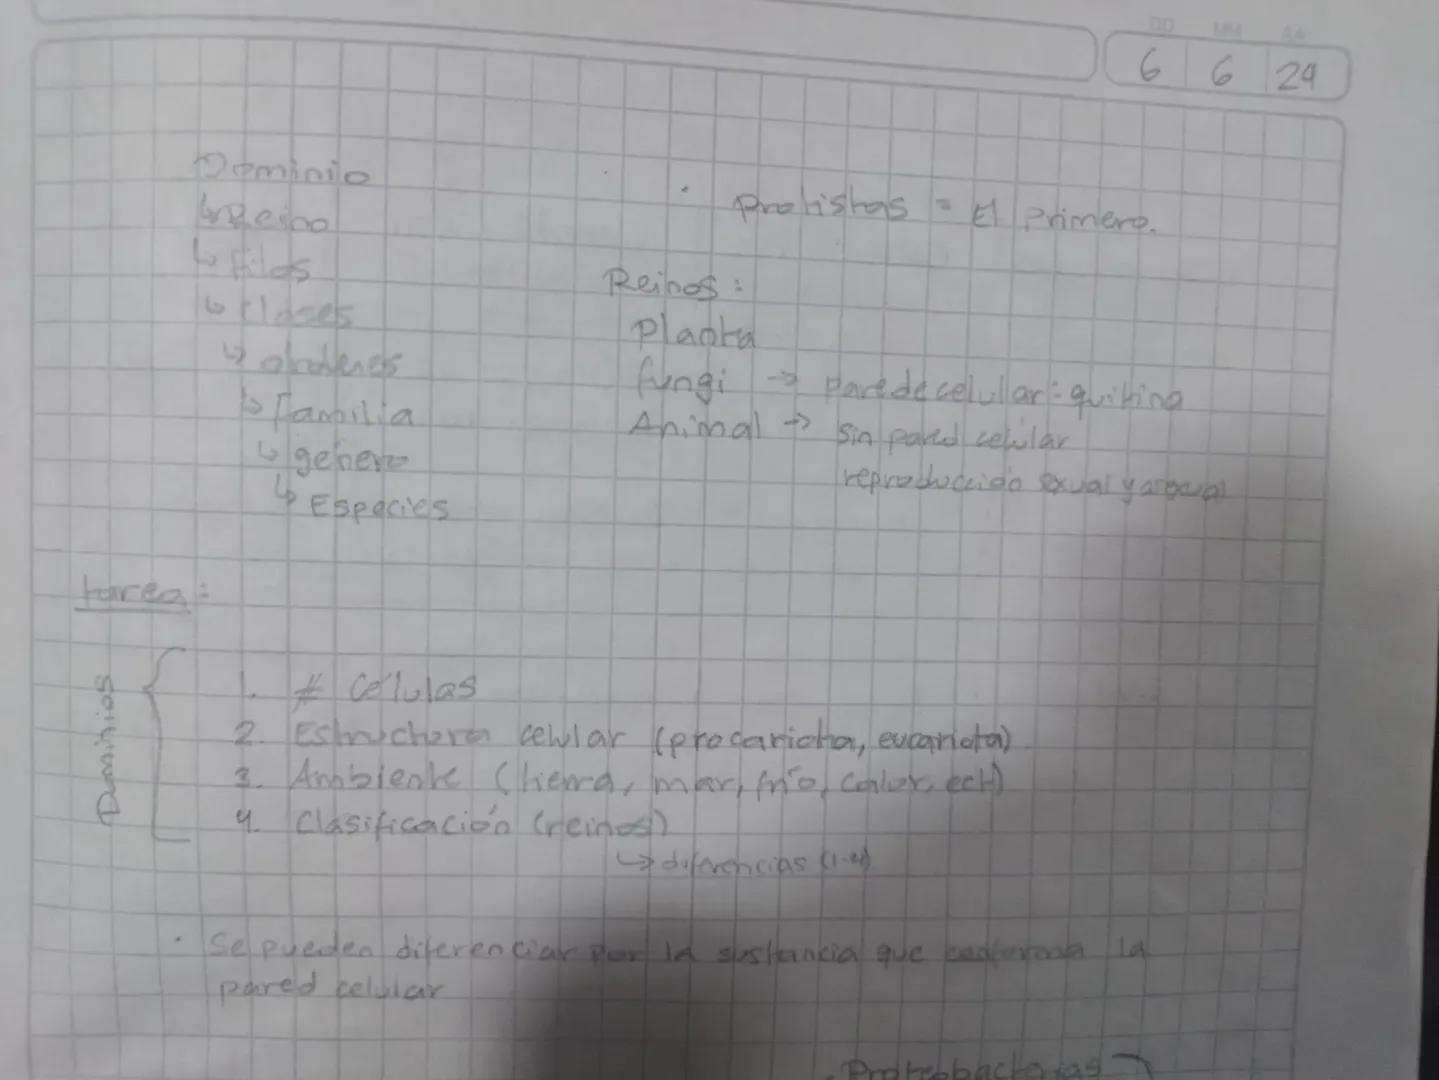 DD MM AA
6 6 24
Dominio
↳ Reino
↳ filos
↳ clases
↳ ordenes
↳ Familia
↳ genero
↳ Especies
· Protistas = El primero.
Reinos:
Planta
fungi → pared de celular: quitina
Animal → sin pared celular
reproducción sexual y asexual
tarea:
Dominios
1. # Celulas
2. Estructura celular (procariota, eucariota)
3. Ambiente (tierra, mar, frío, calor, ect)
4. Clasificación (reinos)
↳ diferencias
· Se pueden diferenciar por la sustancia que conforma la
pared celular
Proteobacterias